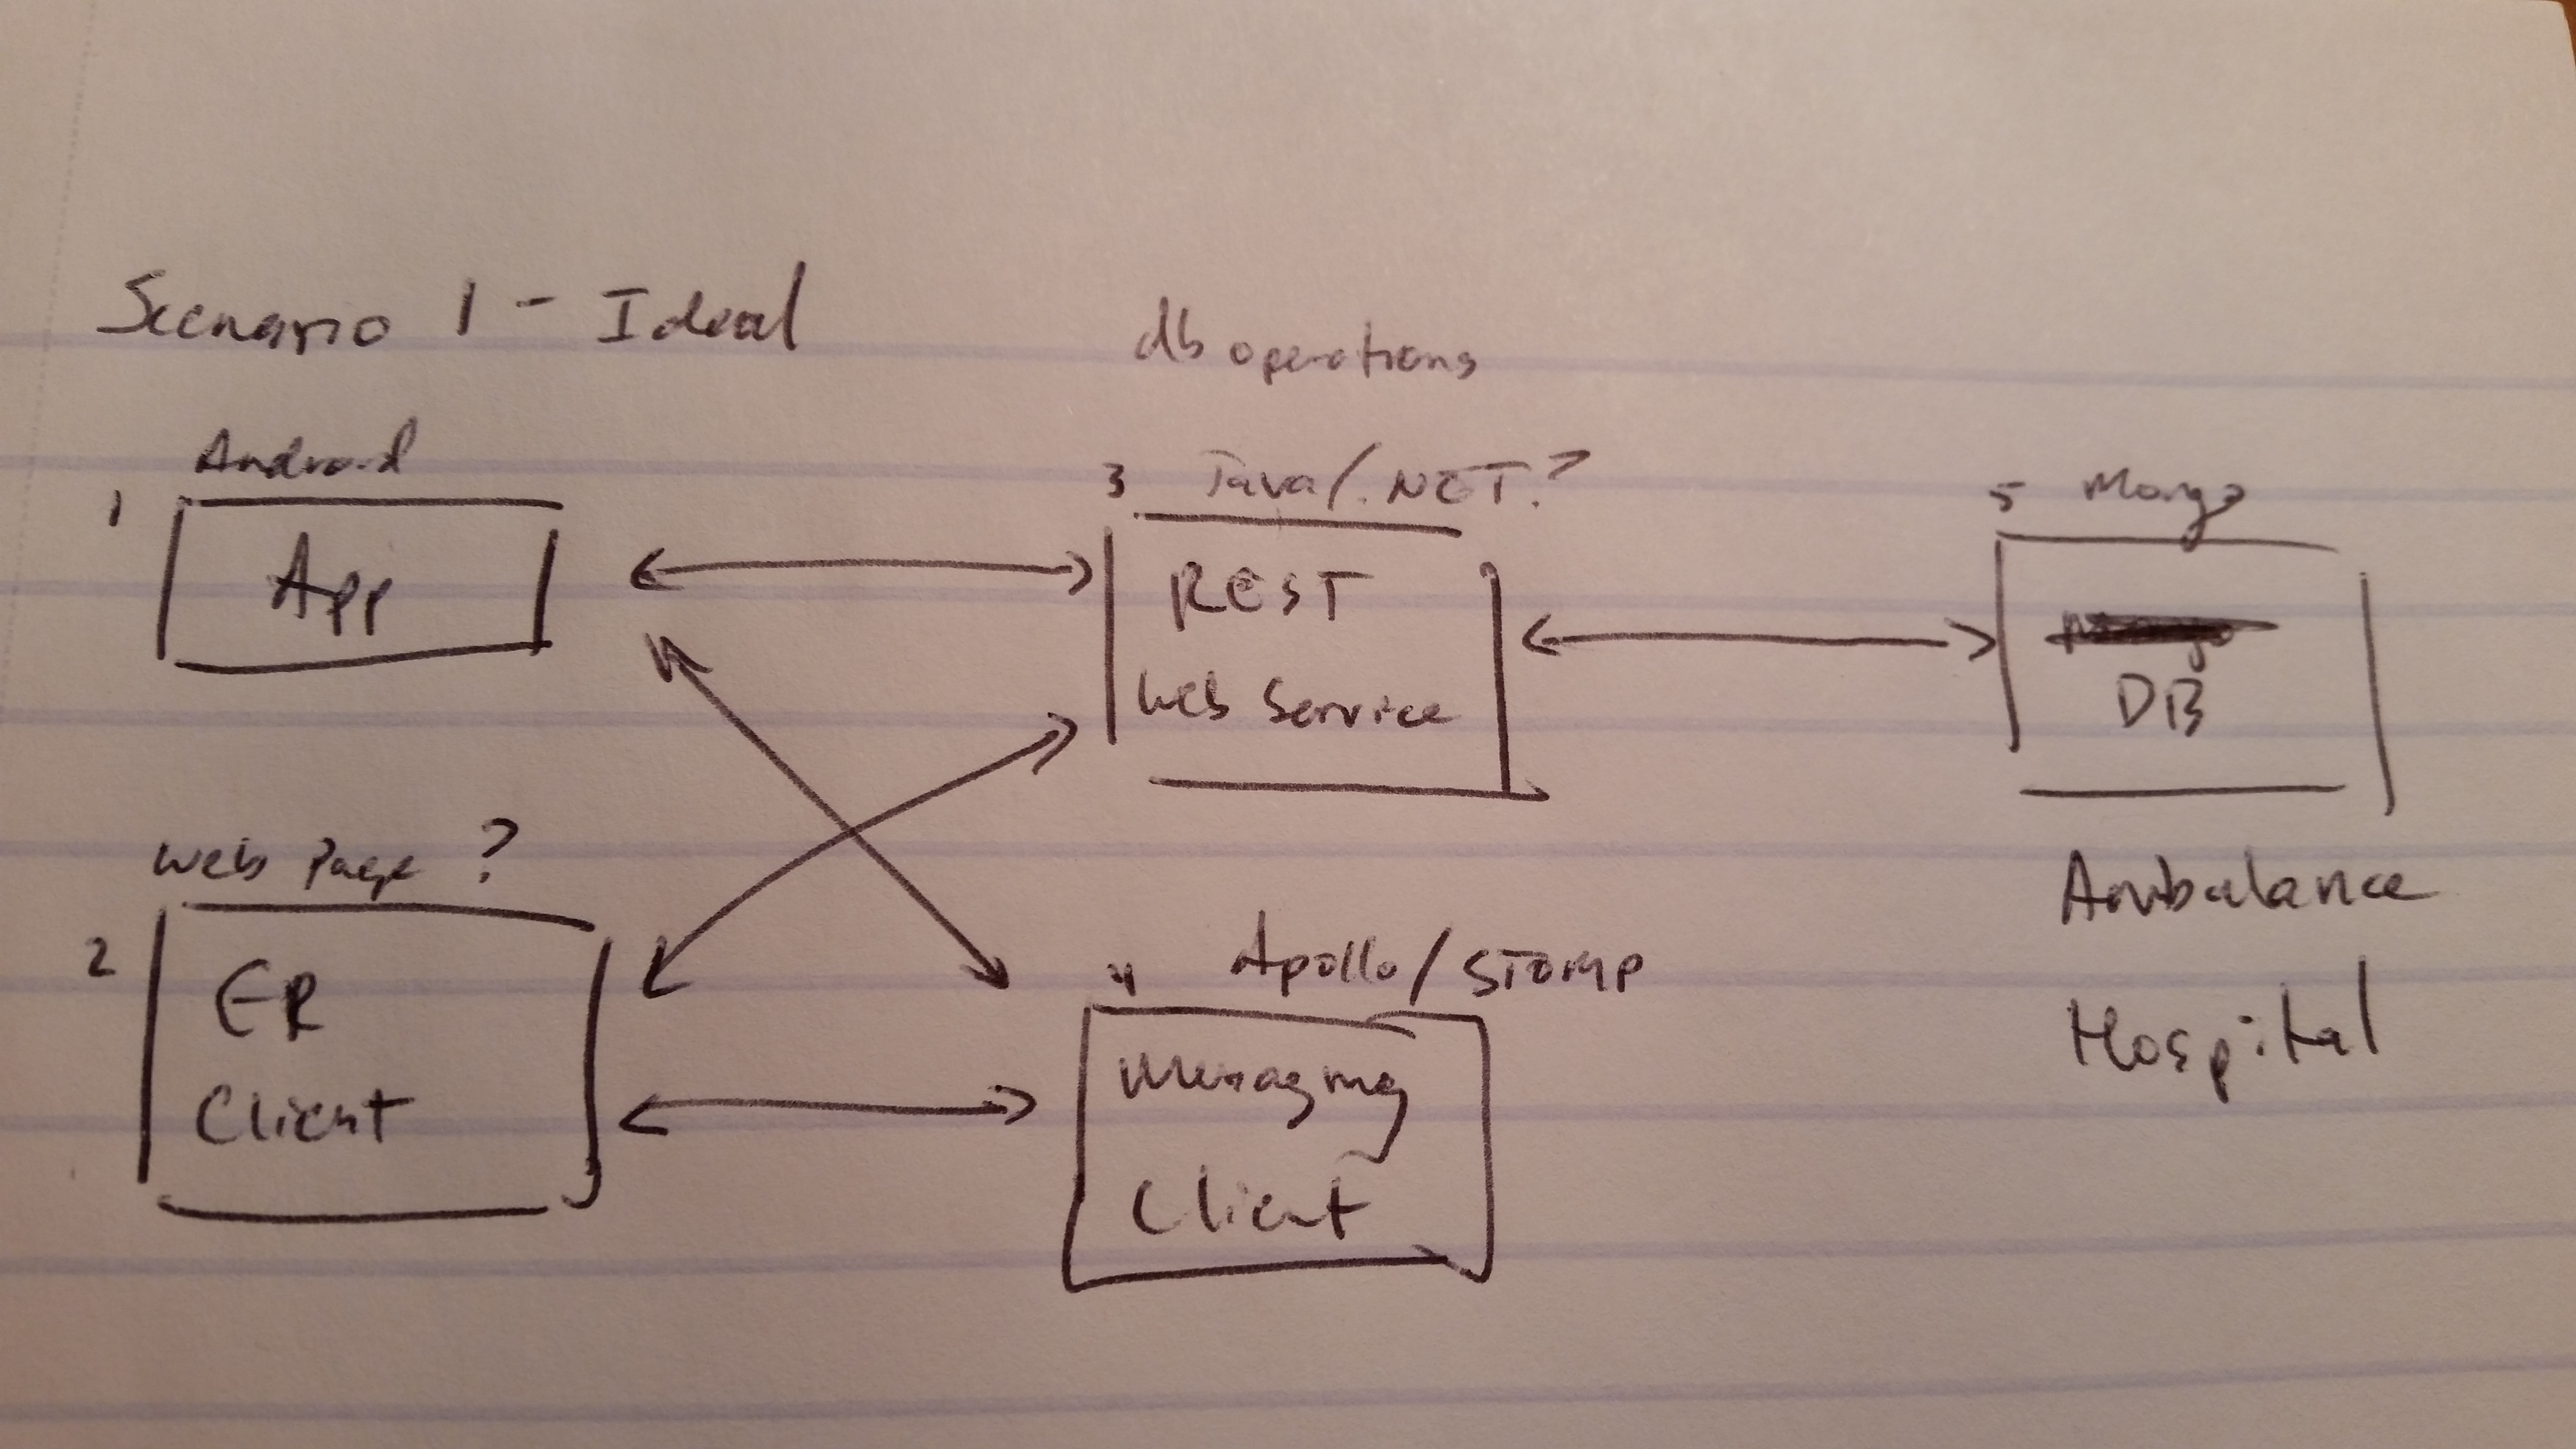 Scenario 1 - Ideal
db operations
Android
1
App
3 Java/.NET?
REST
Web Service
5 Mongo
DB
Ambulance
Hospital
Web Page ?
2
ER
Client
4 Apollo/STOMP
Messaging
Client